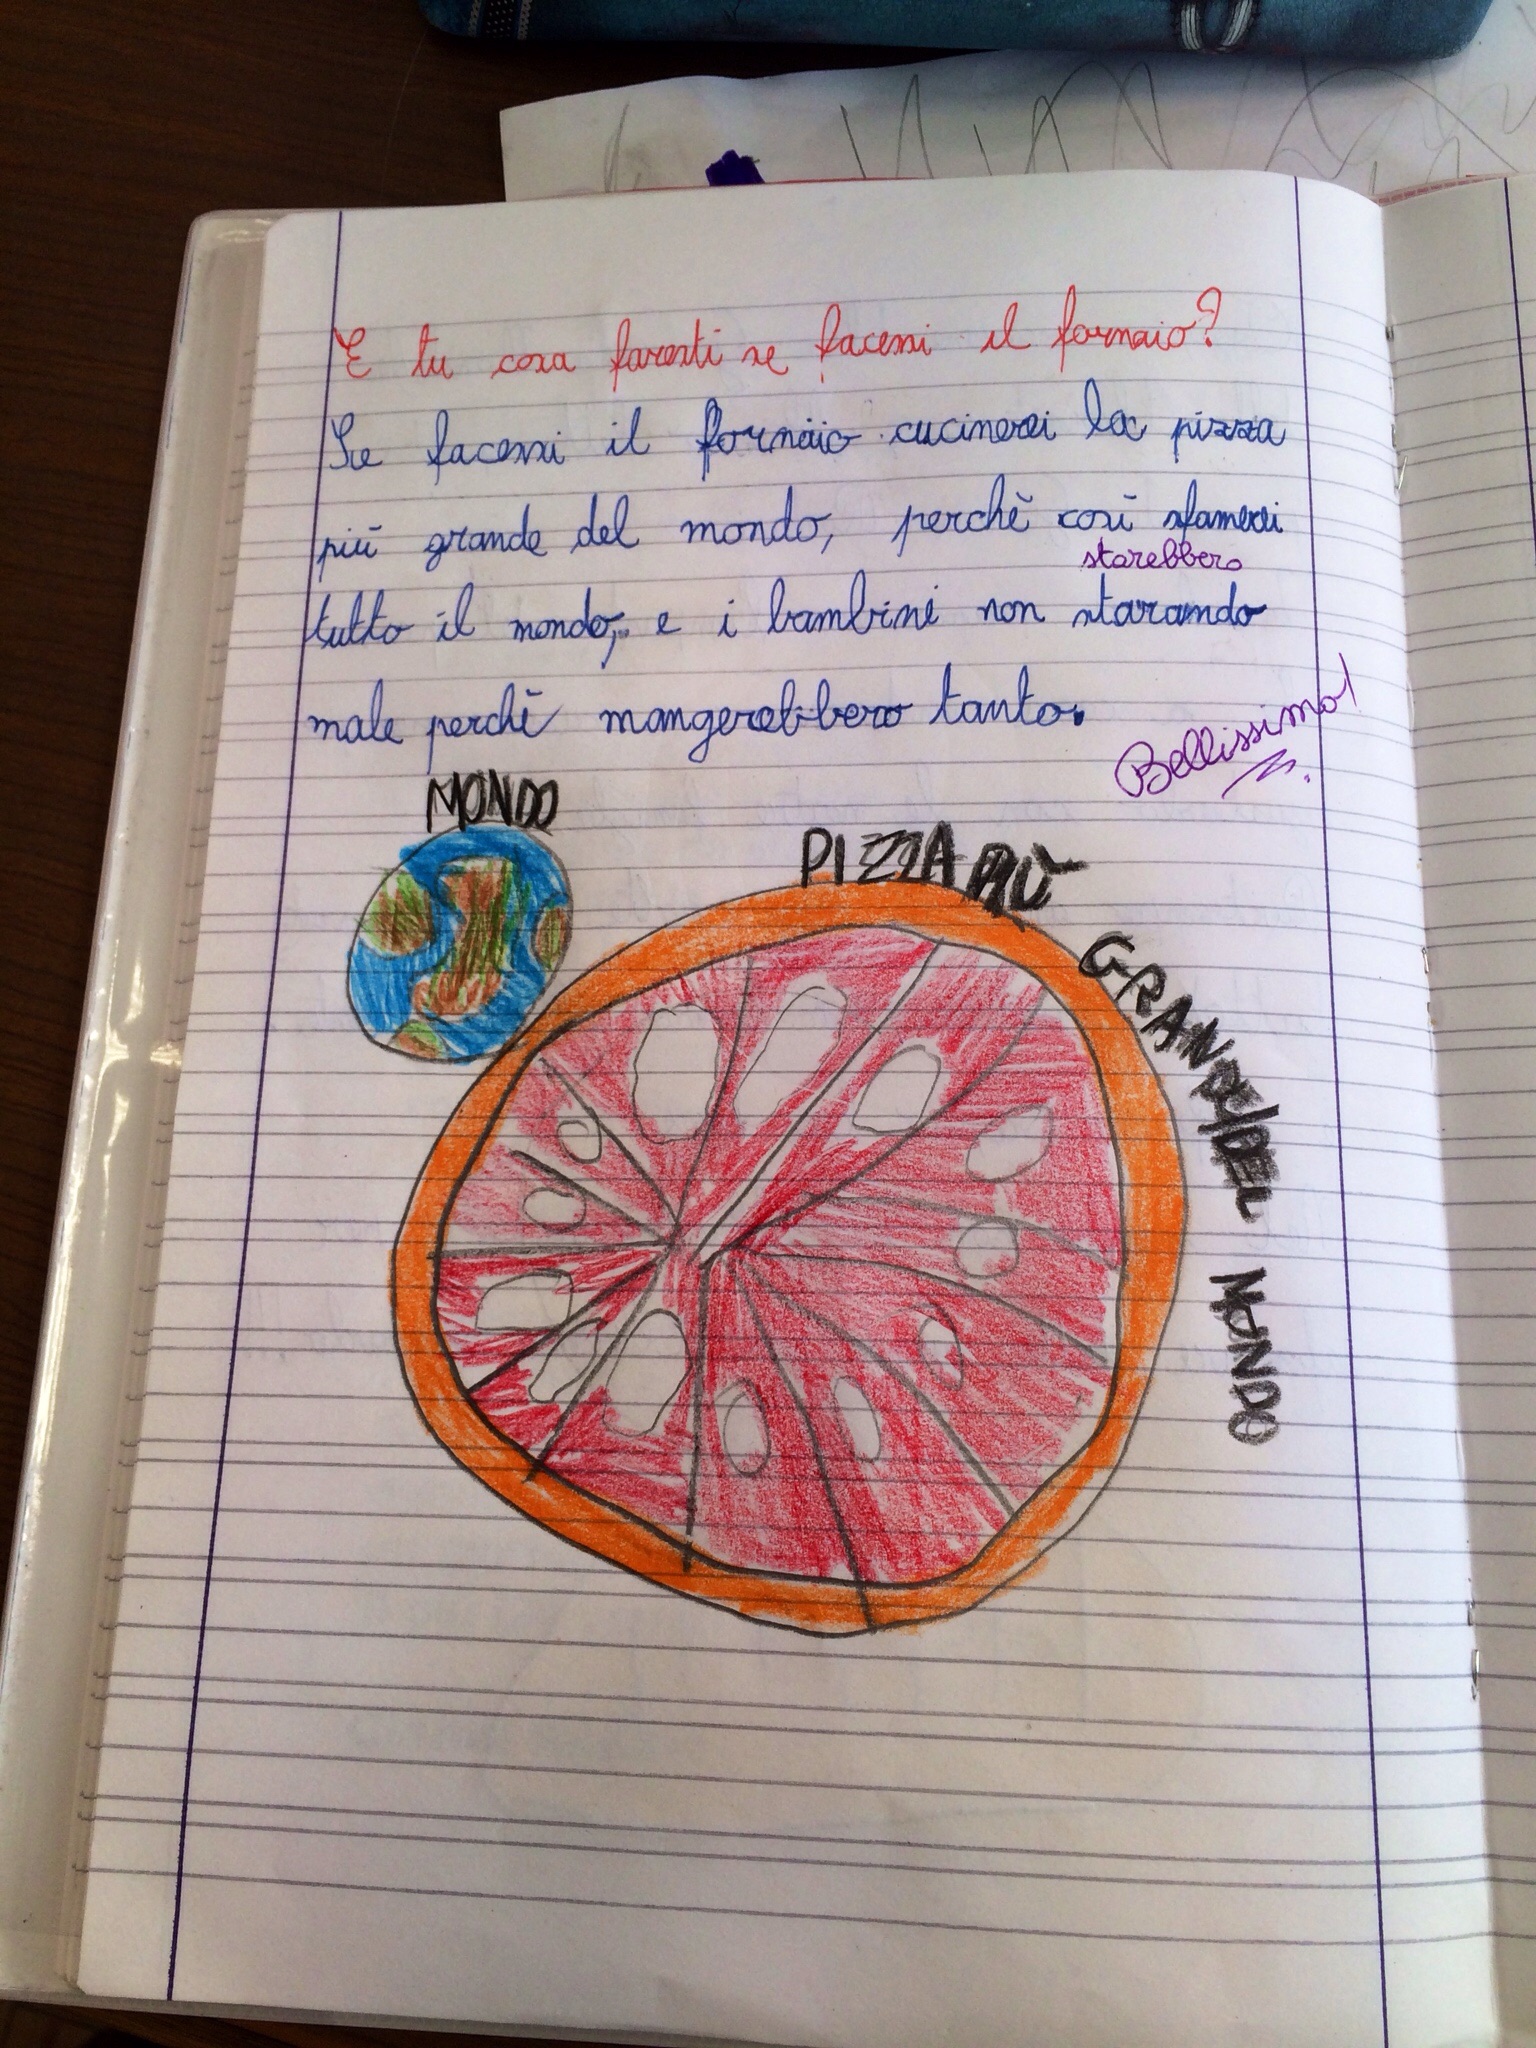 E tu cosa faresti se facessi il fornaio?
Se facessi il fornaio cucinerei la pizza
più grande del mondo, perchè così sfamerei
starebbero
tutto il mondo, e i bambini non starando
male perchè mangerebbero tanto.
Bellissimo!
MONDO
PIZZA PIÙ GRANDE DEL MONDO